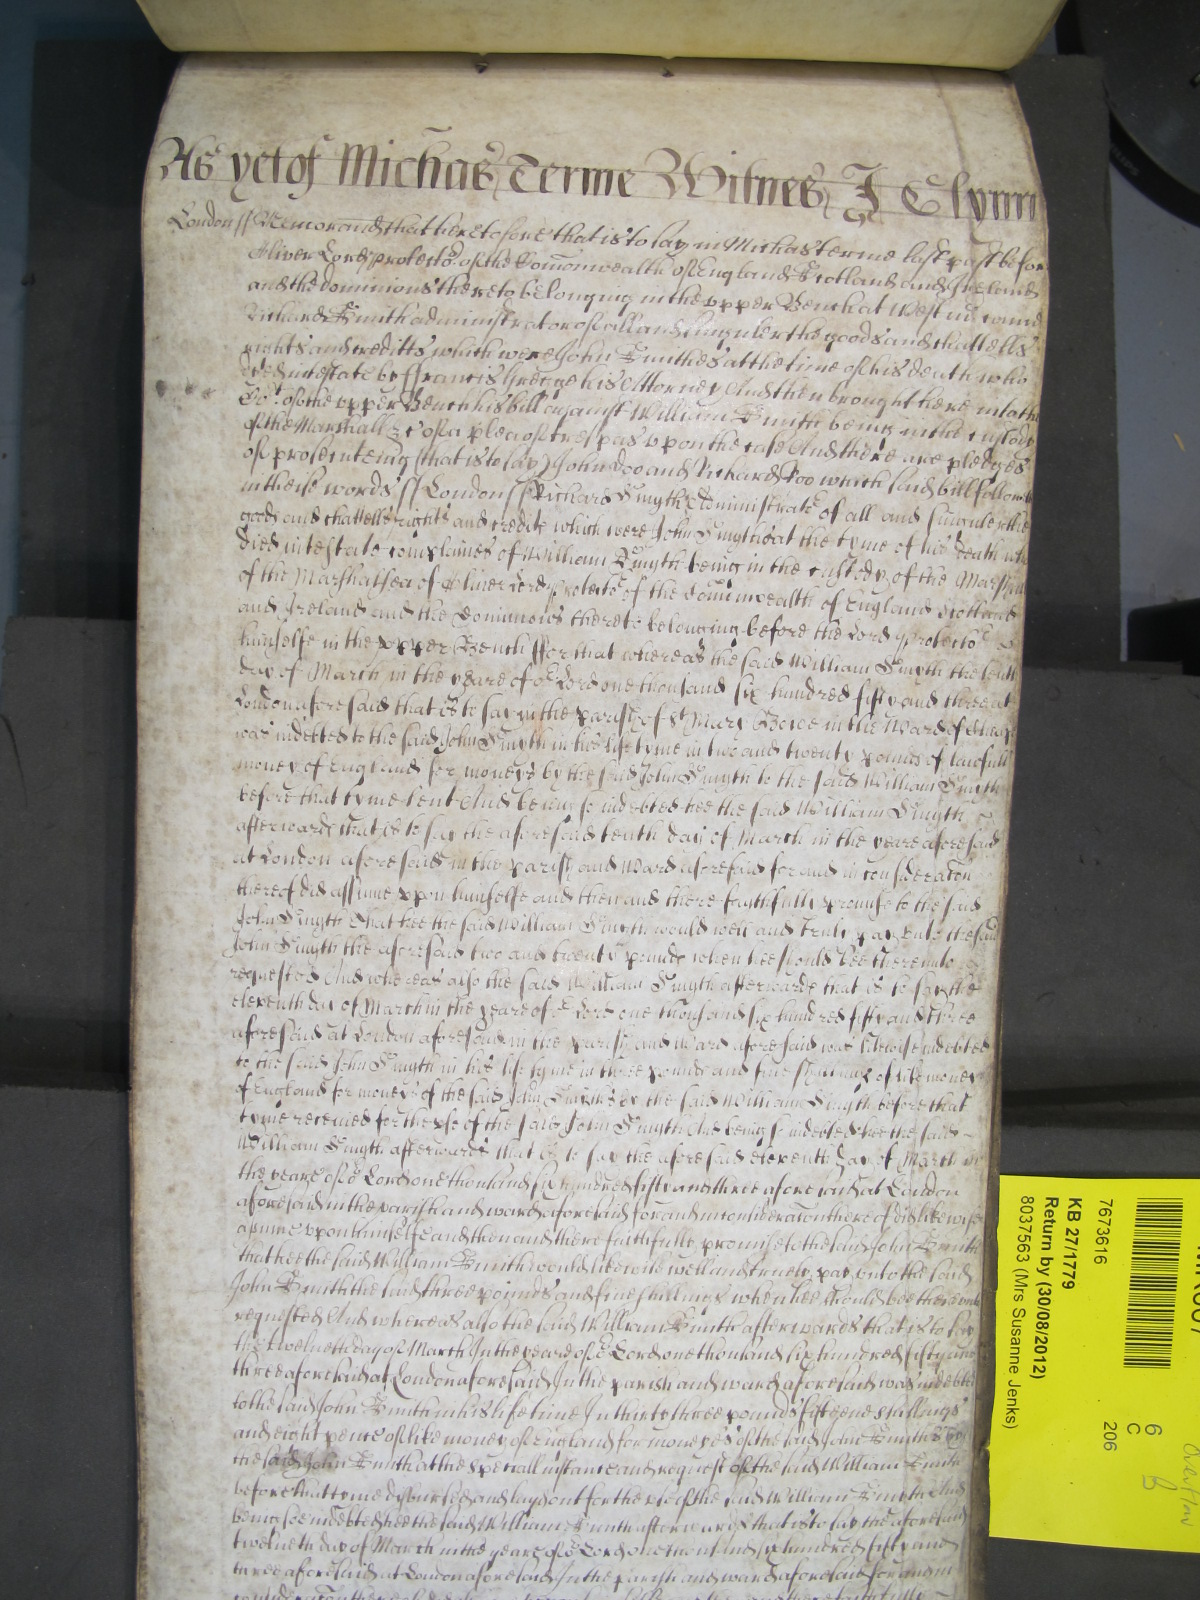 As yet of Michas Terme Witnes J Glynn
London ss Memorand that heretofore that is to say in Michas terme last past before
Oliver Lord protector of the Comonwealth of England Scotland and Ireland
and the dominions thereto belonging in the vpper Bench at Westm came
Richard Smith administrator of all and singuler the goods and chattells
rights and creditts which were John Smithes at the time of his death who
died intestate by Francis George his Attorney And then brought here into the
Co't of the vpper Bench his bill against William Smith being in the custody
of the Marshall &c of a plea of trespas vpon the case And there are pledges
of prosecuteing (that is to say) John Doo and Richard Roo which said bill followes
in theise words ss London ss Richard Smyth Administrator of all and singuler the
goods and chattells rights and credits which were John Smythes at the tyme of his death who
died intestate complaines of William Smyth being in the custody of the Marshall
of the Marshalsea of Oliver Lord Protector of the Comonwealth of England Scotland
and Ireland and the Dominions thereto belonging before the Lord Protector
himselfe in the vpper Bench ffor that whereas the said William Smyth the tenth
day of March in the yeare of or Lord one thousand six hundred fifty and three at
London aforesaid that is to say in the parish of St Mary Bowe in the Ward of Cheape
was indebted to the said John Smyth in his life tyme in two and twenty pounds of lawfull
money of England for moneys by the said John Smyth to the said William Smyth
before that tyme lent And being so indebted hee the said William Smyth
afterwards that is to say the aforesaid tenth day of March in the yeare aforesaid
at London aforesaid in the parish and Ward aforesaid for and in consideracon
thereof did assume vpon himselfe and then and there faythfully promise to the said
John Smyth That hee the said William Smyth would well and truly pay vnto the said
John Smyth the aforesaid two and twenty pounds when hee should bee therevnto
requested And whereas also the said William Smyth afterwards that is to say the
eleventh day of March in the yeare of or Lord one thousand six hundred fifty and three
aforesaid at London aforesaid in the parish and Ward aforesaid was likewise indebted
to the said John Smyth in his life tyme in three pounds and five shillings of like money
of England for moneys of the said John Smyths by the said William Smyth before that
tyme received for the vse of the said John Smyth And being so indebted hee the said
William Smyth afterwards that is to say the aforesaid eleventh day of March in
the yeare of or Lord one thousand six hundred fifty and three aforesaid at London
aforesaid in the parish and ward aforesaid for and in consideracon thereof did likewise
assume vpon himselfe and then and there faithfully promise to the said John Smith
that hee the said William Smith would likewise well and truely pay vnto the said
John Smith the said three pounds and five shillings when hee should bee therevnto
requested And whereas also the said William Smith afterwards that is to say
the twelueth day of March In the yeare of or Lord one thousand six hundred fifty and
three aforesaid at London aforesaid In the parish and ward aforesaid was indebted
to the said John Smith in his life time In thirty three pounds shillings
and eight pence of like money of England for moneyes of the said John Smithes by
the said John Smith at the speciall instance and request of the said William Smith
before that tyme disbursed and layd out for the vse of the said William Smith And
being soe indebted hee the said William Smith afterwards that is to say the aforesaid
twelueth day of March in the yeare of or Lord one thousand six hundred fifty and
three aforesaid at London aforesaid In the parish and ward aforesaid for and in
7673616
KB 27/1779
Return by (30/08/2012)
8037563 (Mrs Susanne Jenks)
6
C
206